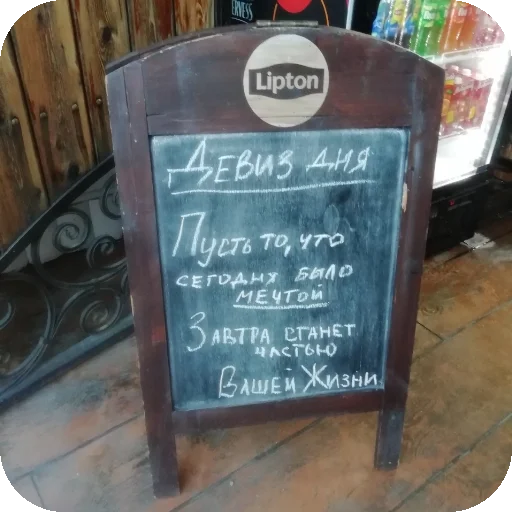 ERVESS
Lipton
ДЕВИЗ ДНЯ
Пусть то, что
СЕГОДНЯ БЫЛО
МЕЧТОЙ
ЗАВТРА СТАНЕТ
ЧАСТЬЮ
ВАШЕЙ ЖИЗНИ